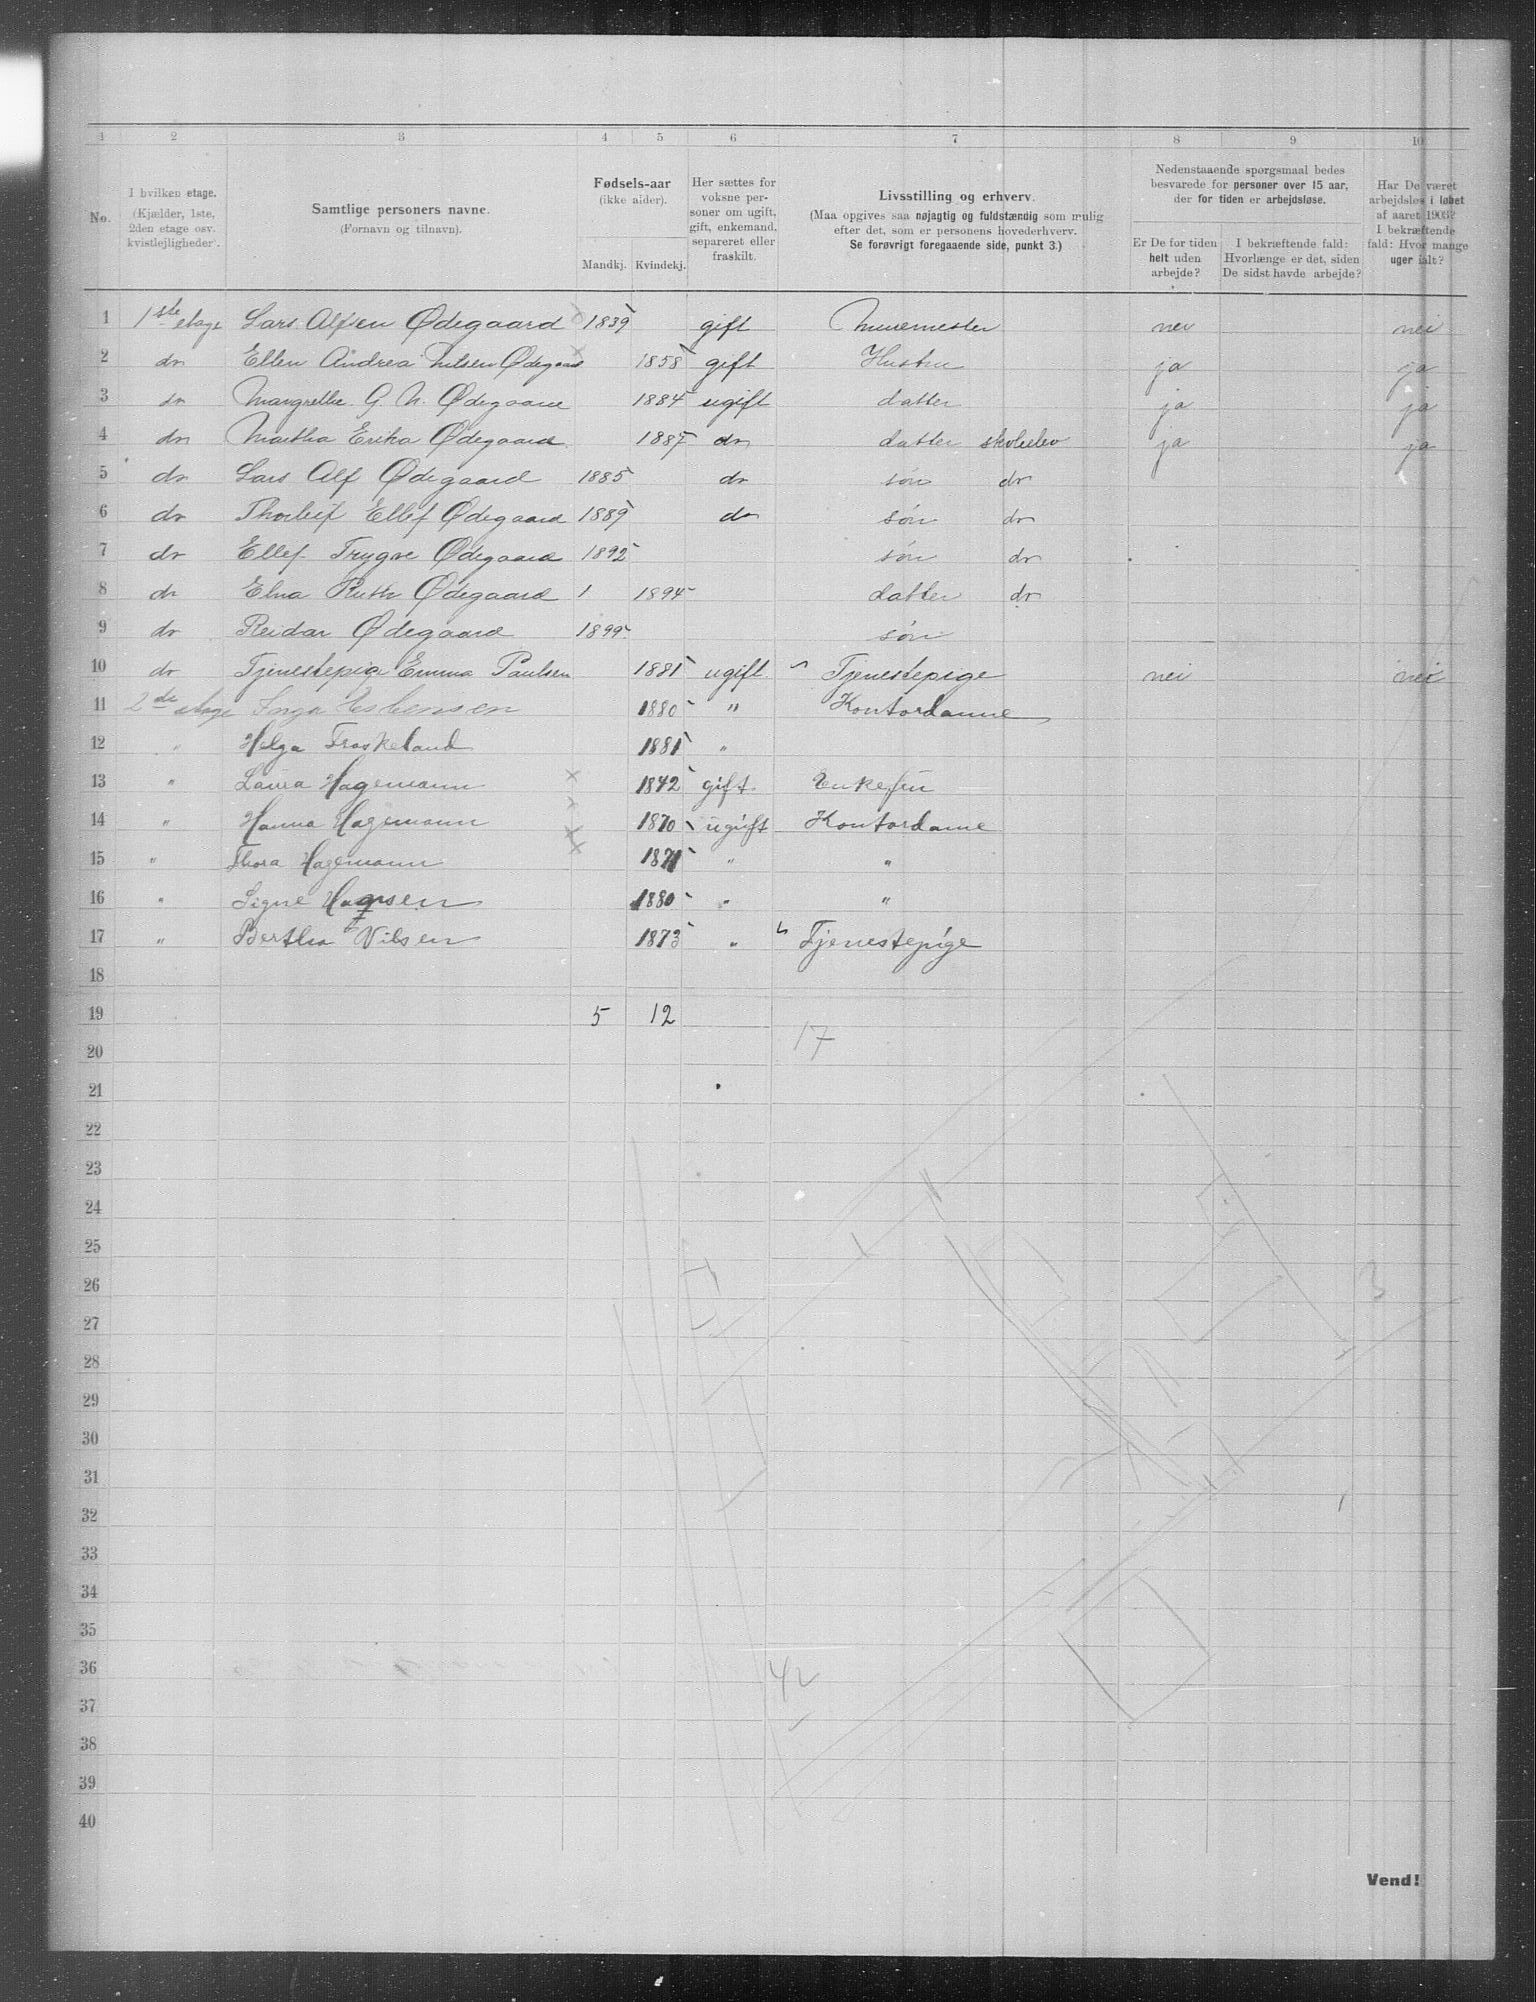 1 2 3 4 5 6 7 8 9 10
No.
I hvilken etage.
(Kjælder, 1ste,
2den etage osv.
kvistlejligheder).
Samtlige personers navne.
(Fornavn og tilnavn).
Fødsels-aar
(ikke alder).
Mandkj. Kvindekj.
Her sættes for
voksne per-
soner om ugift,
gift, enkemand,
separeret eller
fraskilt.
Livsstilling og erhverv.
(Maa opgives saa nøjagtig og fuldstændig som mulig
efter det, som er personens hovederhverv.
Se forøvrigt foregaaende side, punkt 3.)
Nedenstaaende spørgsmaal bedes
besvarede for personer over 15 aar,
der for tiden er arbejdsløse.
Er De for tiden
helt uden
arbejde?
I bekræftende fald:
Hvorlænge er det, siden
De sidst havde arbejde?
Har De været
arbejdsløs i løbet
af aaret 1903?
I bekræftende
fald: Hvor mange
uger ialt?
1 1ste etage Lars Alfsen Ødegaard 1839 gift Murermester nei nei
2 do Ellen Andrea Nilsen Ødegaard 1858 gift Hustru ja ja
3 do Margrethe G. N. Ødegaard 1884 ugift datter ja ja
4 do Martha Erika Ødegaard 1887 do datter skoleelev ja ja
5 do Lars Alf Ødegaard 1885 do søn do
6 do Thorleif Ellef Ødegaard 1889 do søn do
7 do Ellef Trygve Ødegaard 1892 søn do
8 do Elna Ruth Ødegaard 1 1894 datter do
9 do Reidar Ødegaard 1899 søn
10 do Tjenestepige Emma Paulsen 1881 ugift Tjenestepige nei nei
11 2de etage Inga Esbensen 1880 " Kontordame
12 " Helga Traskeland 1881 "
13 " Laura Hagemann 1842 gift Enkefru
14 " Hanna Hagemann 1870 ugift Kontordame
15 " Thora Hagemann 1871 " "
16 " Signe 1880 " "
17 " Bertha Nilsen 1873 " Tjenestepige
18
19 5 12
20 17
21
22
23
24
25
26 3
27
28
29
30
31
32
33
34
35
36 42
37
38
39
40
Vend!